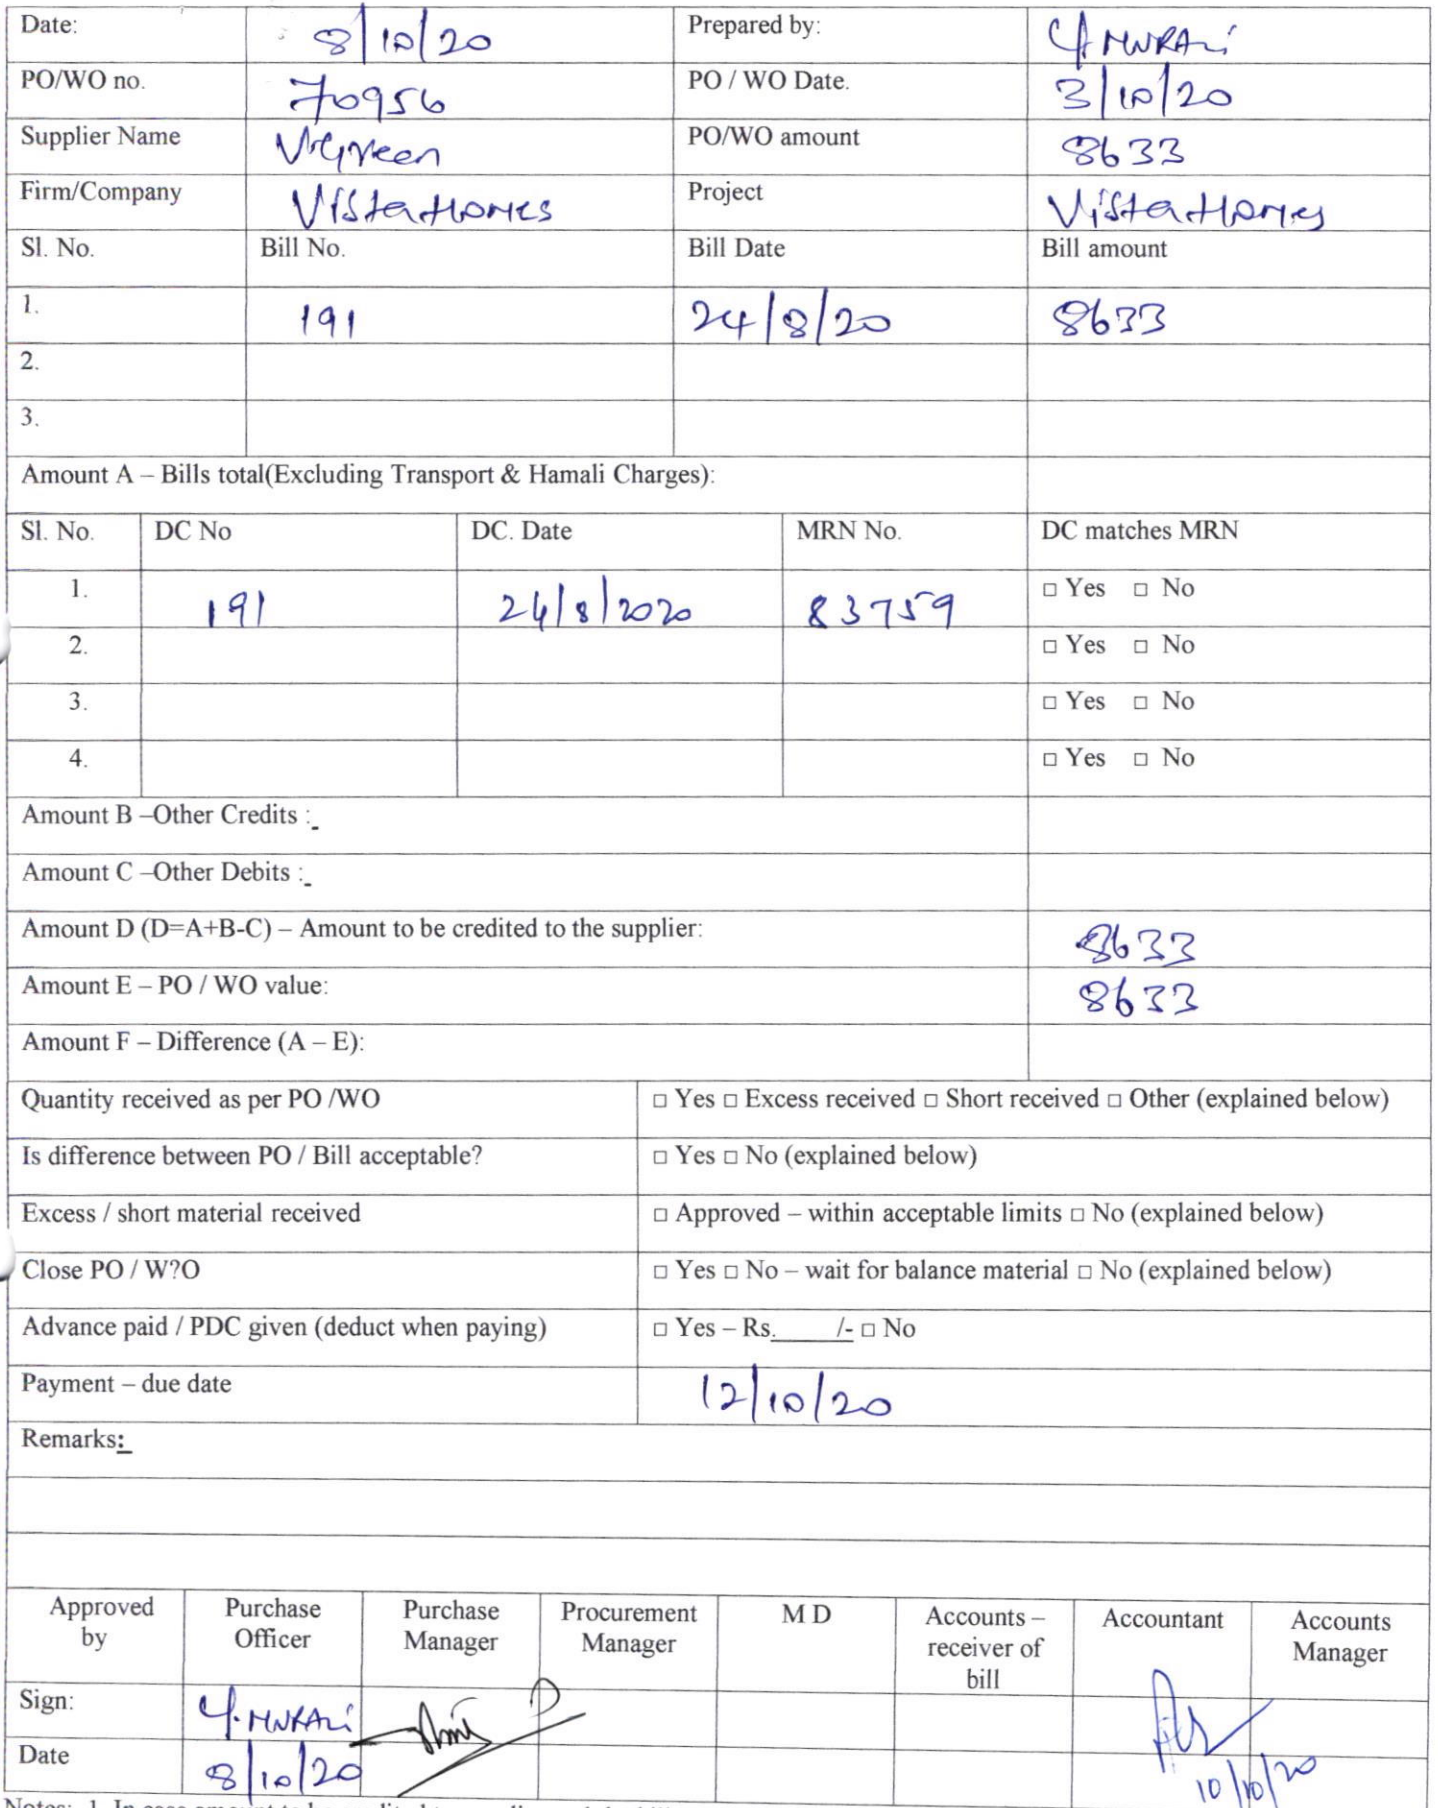 Date: 8/10/20 Prepared by: Y MURALi
PO/WO no. 70956 PO / WO Date. 3/10/20
Supplier Name VGreen PO/WO amount 8633
Firm/Company Vista Homes Project Vista Homes
Sl. No. Bill No. Bill Date Bill amount
1. 191 24/8/20 8633
2.
3.
Amount A – Bills total(Excluding Transport & Hamali Charges):
Sl. No. DC No DC. Date MRN No. DC matches MRN
1. 191 24/8/2020 83759 □ Yes □ No
2. □ Yes □ No
3. □ Yes □ No
4. □ Yes □ No
Amount B –Other Credits :
Amount C –Other Debits :
Amount D (D=A+B-C) – Amount to be credited to the supplier: 8633
Amount E – PO / WO value: 8633
Amount F – Difference (A – E):
Quantity received as per PO /WO □ Yes □ Excess received □ Short received □ Other (explained below)
Is difference between PO / Bill acceptable? □ Yes □ No (explained below)
Excess / short material received □ Approved – within acceptable limits □ No (explained below)
Close PO / W?O □ Yes □ No – wait for balance material □ No (explained below)
Advance paid / PDC given (deduct when paying) □ Yes – Rs.____/- □ No
Payment – due date 12/10/20
Remarks:
Approved by Purchase Officer Purchase Manager Procurement Manager M D Accounts – receiver of bill Accountant Accounts Manager
Sign: Y.MURALi
Date 8/10/20 10/10/20